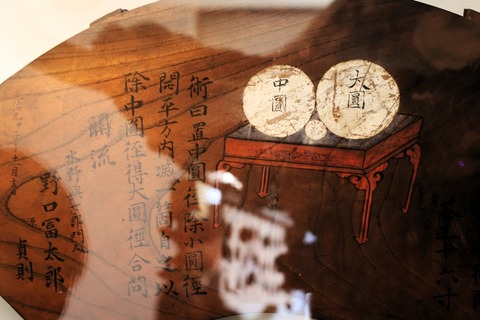 大圓
中圓
術曰置中圓徑除小圓徑
開平方内減一箇自之以
除中圓徑得大圓徑合問
關流
野口冨太郎
貞則